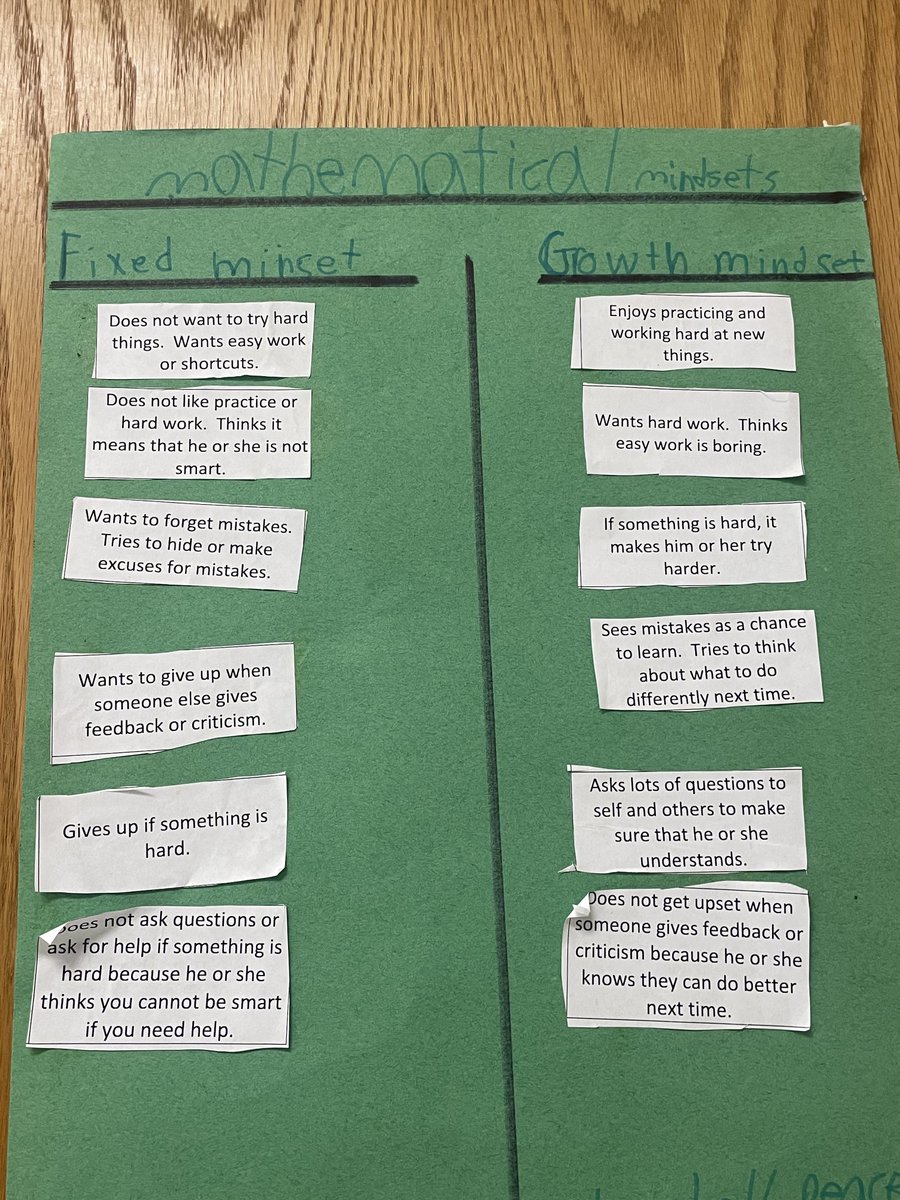 mathematical mindsets
Fixed minset
Does not want to try hard
things. Wants easy work
or shortcuts.
Does not like practice or
hard work. Thinks it
means that he or she is not
smart.
Wants to forget mistakes.
Tries to hide or make
excuses for mistakes.
Wants to give up when
someone else gives
feedback or criticism.
Gives up if something is
hard.
Does not ask questions or
ask for help if something is
hard because he or she
thinks you cannot be smart
if you need help.
Growth mindset
Enjoys practicing and
working hard at new
things.
Wants hard work. Thinks
easy work is boring.
If something is hard, it
makes him or her try
harder.
Sees mistakes as a chance
to learn. Tries to think
about what to do
differently next time.
Asks lots of questions to
self and others to make
sure that he or she
understands.
Does not get upset when
someone gives feedback or
criticism because he or she
knows they can do better
next time.